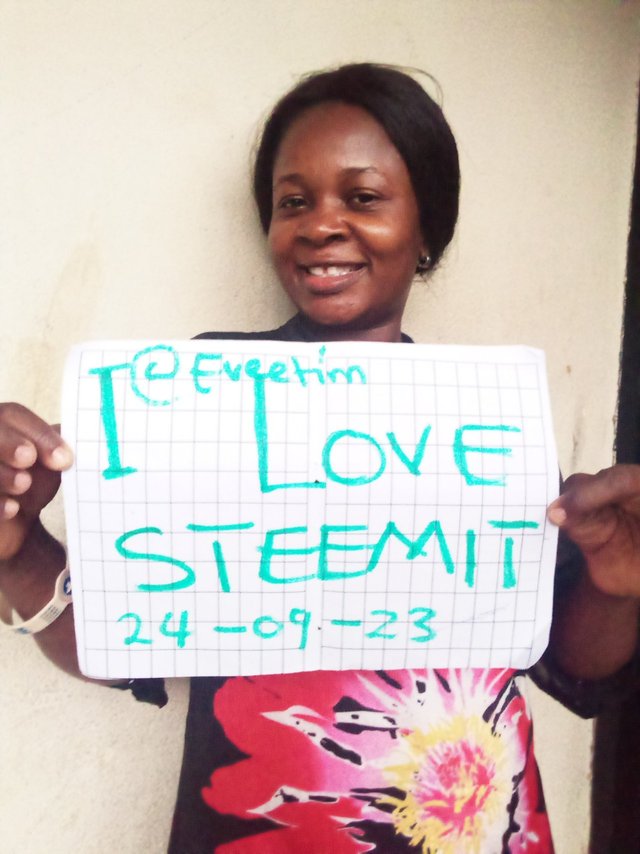 @Eveetim
I LOVE
STEEMIT
24-09-23